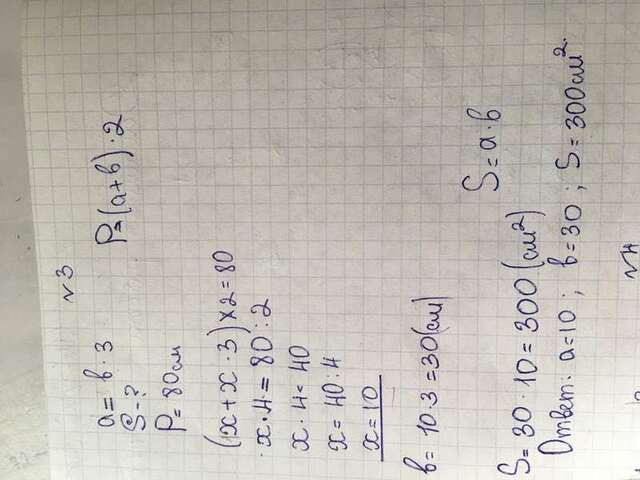 №3
a = b · 3
S - ?
P = 80 см
P = (a + b) · 2
(1x + x · 3) × 2 = 80
· x · 4 · = 80 : 2
x · 4 = 40
x = 40 : 4
x = 10
b = 10 · 3 = 30 (см)
S = a · b
S = 30 · 10 = 300 (см²)
Ответ: a = 10 ; b = 30 ; S = 300 см².
№4